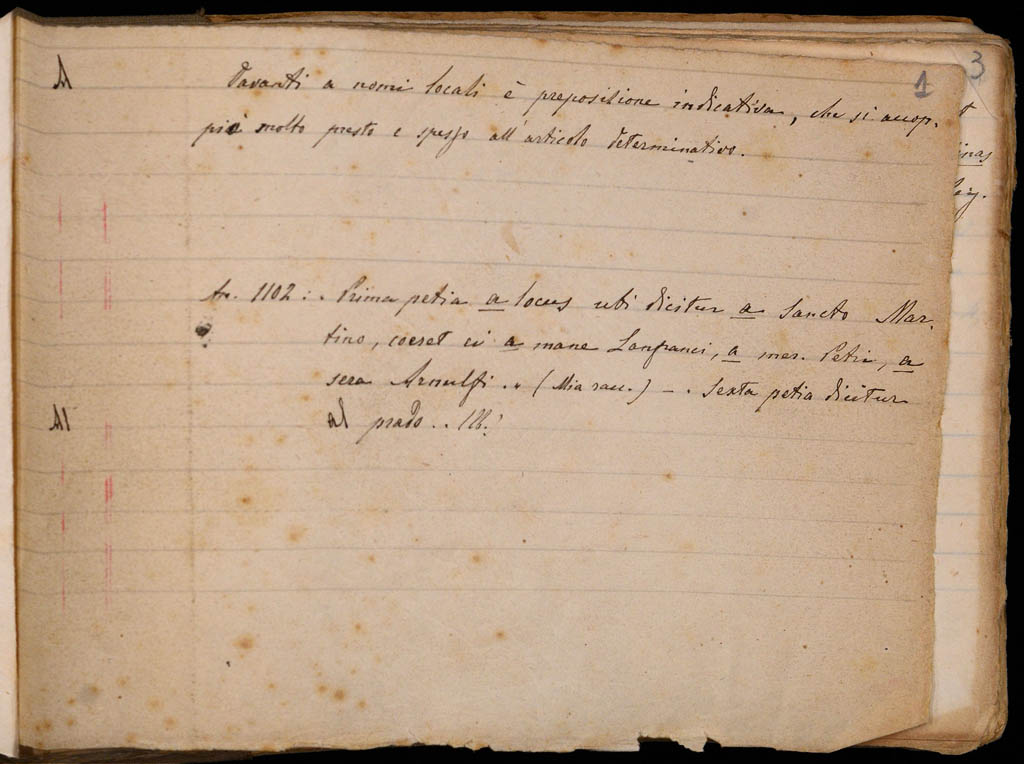 1
3
A davanti a nomi locali è preposizione indicativa, che si accop-
pia molto presto e spesso all'articolo determinativo.
An. 1102: . Prima petia a locus ubi dicitur a Sancto Mar-
tino, coeret ei a mane Lanfranci, a mer. Petri, a
sera Arnulfi . " (Mia racc.) - . Sexta petia dicitur
Al al prado . . Ib.
inas